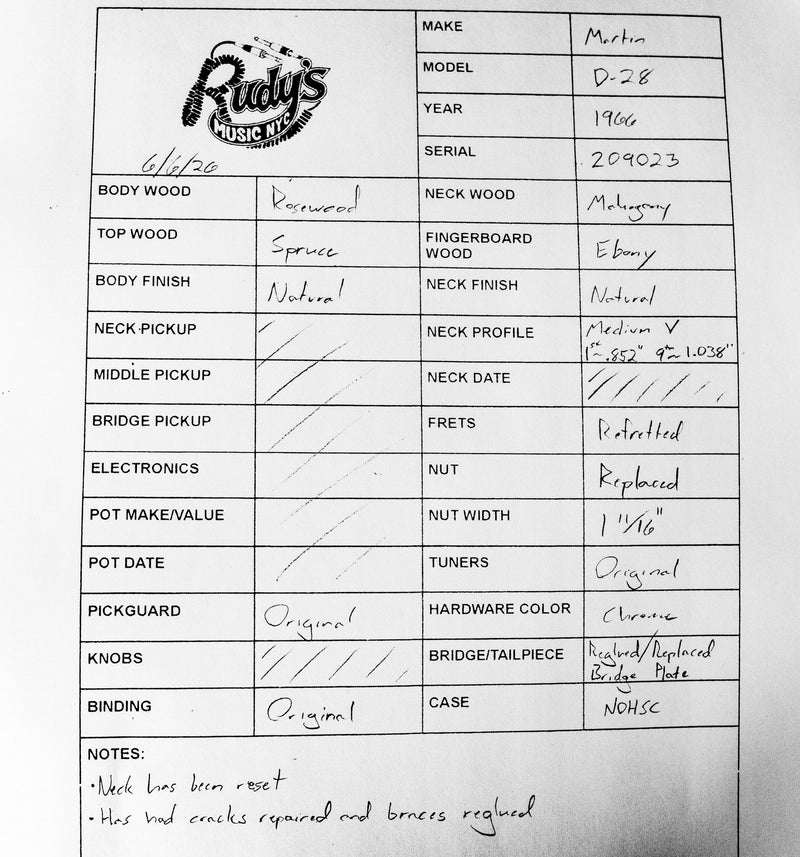 Rudy's
MUSIC NYC
6/6/26
MAKE Martin
MODEL D-28
YEAR 1966
SERIAL 209023
BODY WOOD Rosewood NECK WOOD Mahogany
TOP WOOD Spruce FINGERBOARD WOOD Ebony
BODY FINISH Natural NECK FINISH Natural
NECK PICKUP NECK PROFILE Medium V
1st~.852" 9th~1.038"
MIDDLE PICKUP NECK DATE
BRIDGE PICKUP FRETS Refretted
ELECTRONICS NUT Replaced
POT MAKE/VALUE NUT WIDTH 1 11/16"
POT DATE TUNERS Original
PICKGUARD Original HARDWARE COLOR Chrome
KNOBS BRIDGE/TAILPIECE Reglued/Replaced
Bridge Plate
BINDING Original CASE NOHSC
NOTES:
• Neck has been reset
• Has had cracks repaired and braces reglued